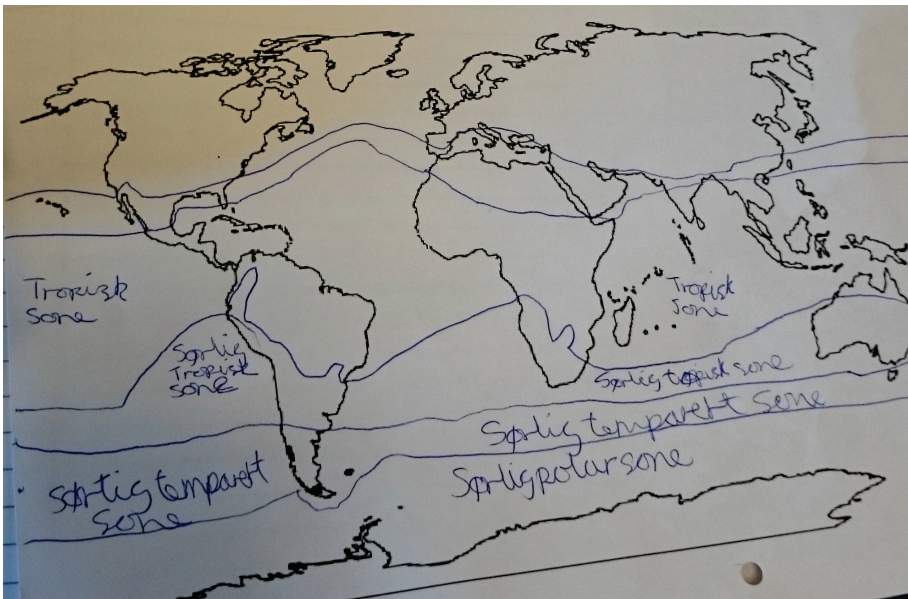 Tropisk
Sone
Tropisk
Sone
Sørlig
Tropisk
sone
Sørlig tropisk sone
Sørlig temparert sone
Sørlig temparert
sone
Sørlig polar sone